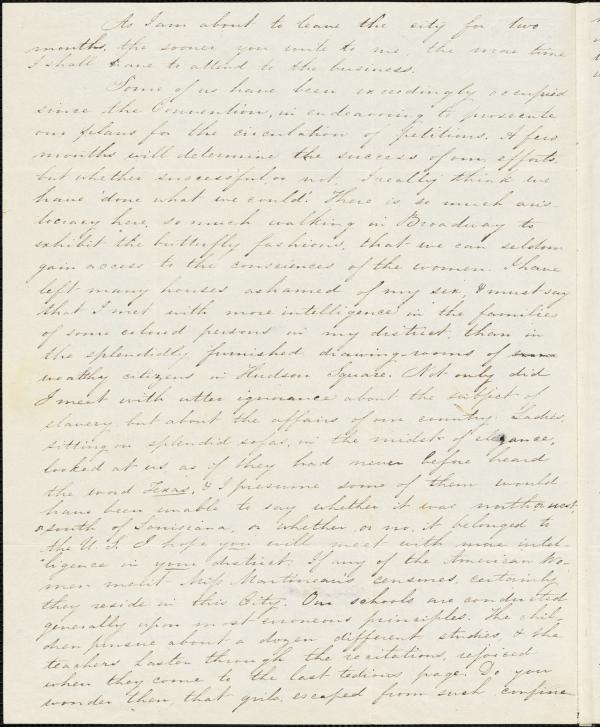 As I am about to leave the city for two
months, the sooner you write to me, the more time
I shall have to attend to the business.
Some of us have been exceedingly occupied
since the Convention, in endeavoring to prosecute
our plans for the circulation of petitions. A few
months will determine the success of our efforts,
but whether successful or not, I really think we
have 'done what we could.' There is so much aris-
tocracy here, so much walking in Broadway to
exhibit the butterfly fashions, that we can seldom
gain access to the consciences of the women. I have
left many houses ashamed of my sex, & must say
that I met with more intelligence in the families
of some colored persons in my district, than in
the splendidly furnished drawing-rooms of some
wealthy citizens in Hudson Square. Not only did
I meet with utter ignorance about the subject of
slavery, but about the affairs of our country. Ladies,
sitting on splendid sofas, in the midst of elegance,
looked at us, as if they had never before heard
the word Texas, & I presume some of them would
have been unable to say whether it was north or west,
or south of Louisiana, or whether or no, it belonged to
the U.S. I hope you will meet with more intel-
ligence in your district. If any of the American Wo-
men merit Miss Martineau's censures, certainly
they reside in this City. Our schools are conducted
generally upon most erroneous principles. The chil-
dren pursue about a dozen different studies, & the
teachers hasten through the recitations, rejoiced
when they come to the last tedious page. Do you
wonder then, that girls, escaped from such confine